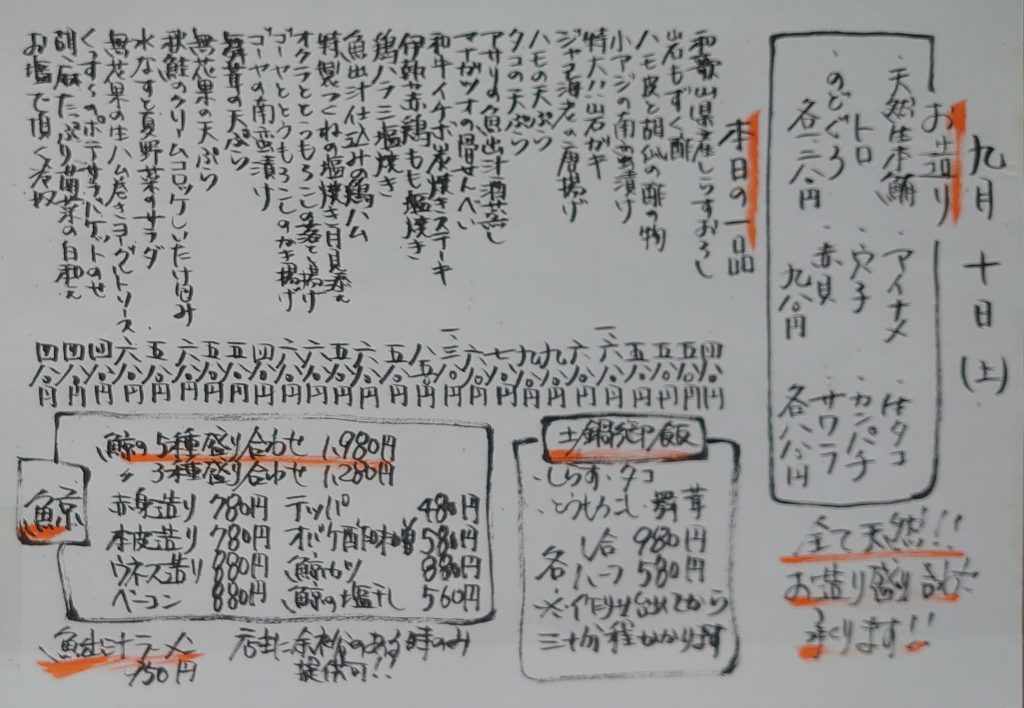 九月十日(土)
お造り
・天然生本鮪
トロ
・のどぐろ
各一二八〇円
・アイナメ
・穴子
・赤貝
九八〇円
・生タコ
・カンパチ
・サワラ
各八八〇円
全て天然!!!
お造り盛り合わせ
承ります!!
本日の一品
和歌山県産しらすおろし 四八〇円
岩もずく酢 五八〇円
ハモ皮と胡瓜の酢の物 五八〇円
小アジの南蛮漬け 五八〇円
特大!!岩ガキ 一、六八〇円
ジャコ海老の唐揚げ 六八〇円
ハモの天ぷら 九八〇円
タコの天ぷら 九八〇円
マナガツオの骨せんべい
アサリの魚出汁酒蒸し
和牛イチボ炭焼きステーキ 一、三八〇円
伊勢赤鶏もも塩焼き 八五〇円
鶏ハラミ塩焼き 五八〇円
魚出汁仕込みの鶏ハム 六八〇円
特製つくねの塩焼き月見添え 五八〇円
オクラととうもろこしの落とし揚げ 六八〇円
ゴーヤととうもろこしのかき揚げ 六八〇円
ゴーヤの南蛮漬け 四八〇円
舞茸の天ぷら 五八〇円
無花果の天ぷら 六八〇円
秋鮭のクリームコロッケしいたけ包み
水なすと夏野菜のサラダ
無花果の生ハム巻きヨーグルトソース 六八〇円
くずし〜のポテサラバケットのせ 四八〇円
胡麻たっぷり青菜の白和え 四八〇円
お塩で頂く冷奴 四八〇円
土鍋御飯
・しらす・タコ
・とうもろこし・舞茸
各 一合 980円
ハーフ 580円
※作り出してから
三十分程かかります
鯨
鯨の5種盛り合わせ 1,980円
〃 3種盛り合わせ 1,280円
赤身造り 780円 テッパ 480円
本皮造り 780円 オバケ酢味噌 580円
ウネス造り 880円 鯨カツ 880円
ベーコン 880円 鯨の塩干し 560円
魚出汁ラーメン
750円
店主に余裕のある時のみ
提供可!!